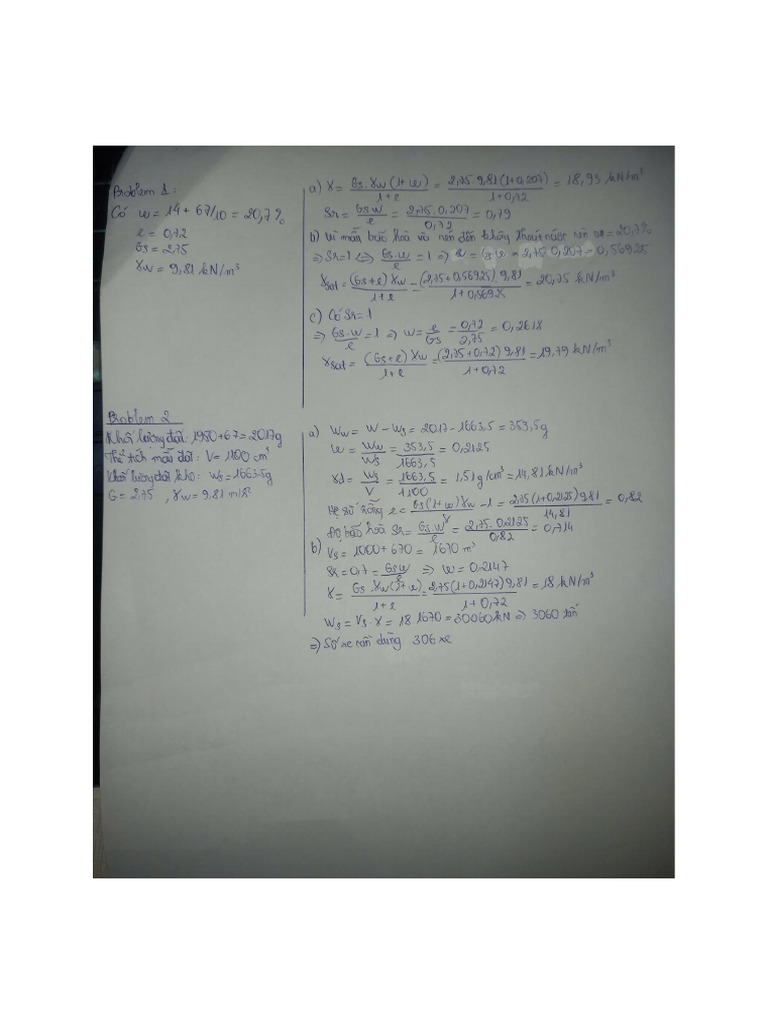 Problem 1:
Có w = 14 + 67/10 = 20,7%
e = 0,72
Gs = 2,75
γw = 9,81 kN/m³
a) γ = Gs.γw(1+w)/(1+e) = 2,75.9,81(1+0,207)/(1+0,72) = 18,93 kN/m³
Sr = Gs.w/e = 2,75.0,207/0,72 = 0,79
b) Vì mẫu bão hoà và nén đến không thoát nước nên w = 20,7%
⇒ Sr=1 ⇔ Gs.w/e = 1 ⇒ e = Gs.w = 2,75.0,207 = 0,56925
γsat = (Gs+e)γw/(1+e) = (2,75+0,56925).9,81/(1+0,56925) = 20,75 kN/m³
c) Có Sr=1
⇒ Gs.w/e = 1 ⇒ w = e/Gs = 0,72/2,75 = 0,2618
γsat = (Gs+e)γw/(1+e) = (2,75+0,72)9,81/(1+0,72) = 19,79 kN/m³
Problem 2
Khối lượng đất: 1950+67 = 2017g
Thể tích mẫu đất: V = 1100 cm³
Khối lượng đất khô: Ws = 1663.5g
G = 2,75 , γw = 9,81
a) Ww = W - Ws = 2017 - 1663,5 = 353,5g
w = Ww/Ws = 353,5/1663,5 = 0,2125
γd = Ws/V = 1663,5/1100 = 1,51 g/cm³ = 14,81 kN/m³
Hệ số rỗng e = Gs(1+w)γw/γ - 1 = 2,75(1+0,2125)9,81/14,81 = 0,82
Độ bão hoà Sr = Gs.w/e = 2,75.0,2125/0,82 = 0,714
b) Vs = 1000 + 670 = 1670 m³
Sr = 0,7 = Gs.w/e ⇒ w = 0,2147
γ = Gs.γw(1+w)/(1+e) = 2,75(1+0,2147)9,81/(1+0,72) = 18 kN/m³
Ws = Vs.γ = 18.1670 = 30060kN ⇒ 3060 tấn
⇒ Số xe cần dùng 306 xe